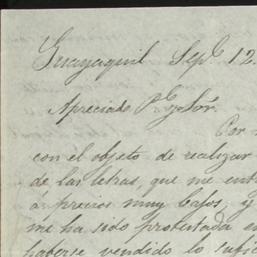 Guayaquil Sep.e 12.
Apreciado P.e y Sór.
Por
con el objeto de realizar
de las letras, que me ent
a precios muy bajos, y
me ha sido protestada en
haberse vendido lo sufic